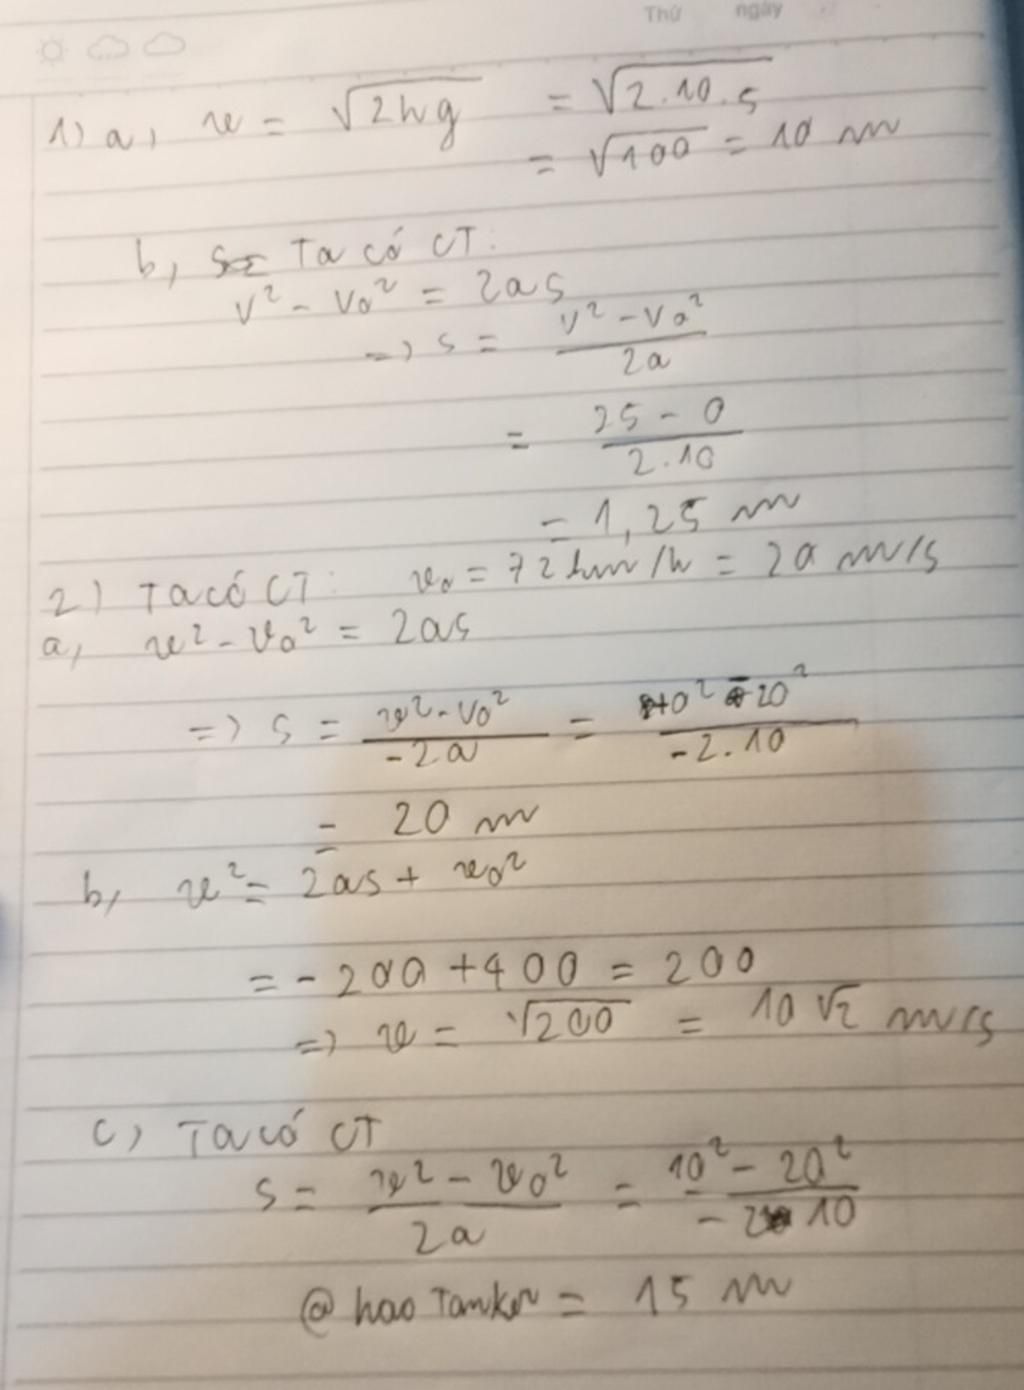 Thứ ngày
1) a, v = √2hg = √2.10.5
= √100 = 10 m
b, s= Ta có CT:
v² - v₀² = 2as
=> s = (v² - v₀²)/2a
= (25 - 0)/2.10
= 1,25 m
2) Ta có CT: v₀ = 72 km/h = 20 m/s
a, v² - v₀² = 2as
=> s = (v² - v₀²)/-2a = (0² - 20²)/-2.10
= 20 m
b, v² = 2as + v₀²
= -200 + 400 = 200
=> v = √200 = 10√2 m/s
c) Ta có CT
s = (v² - v₀²)/2a = (10² - 20²)/-2 10
@haoTanker = 15 m